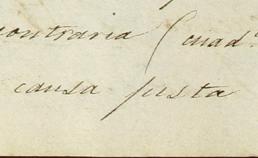 contraria (cuad.
causa justa